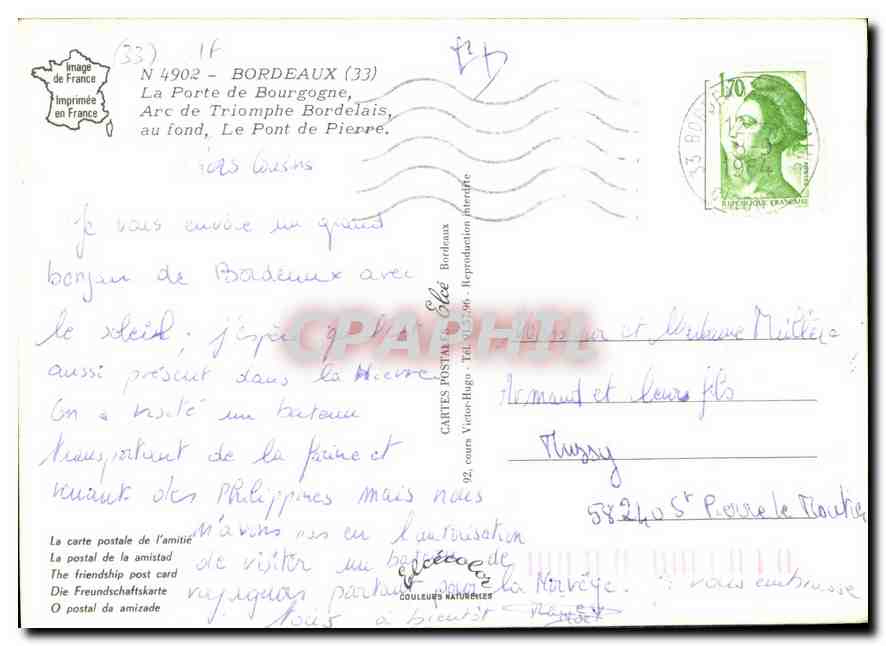 (33) 1F
Image
de France
Imprimée
en France
N 4902 - BORDEAUX (33)
La Porte de Bourgogne,
Arc de Triomphe Bordelais,
au fond, Le Pont de Pierre.
1,70
REPUBLIQUE FRANÇAISE
33 BORDEAUX
Cousins
Je vous envoie un grand
bonjour de Bordeaux avec
le soleil, j'espère qu'il est
aussi présent dans la Nièvre
On a visité un bateau
transportant de la farine et
venant des Philippines mais nous
n'avons pas eu l'autorisation
de visiter un bateau de
partant pour la Norvège. Je vous embrasse
à bientôt
CARTES POSTALES Elcé Bordeaux
92, cours Victor-Hugo - Tél. 91.57.96 - Reproduction interdite
CPAPHIL
Monsieur et Madame
Armand et leurs fils
Mussy
58240 St Pierre le Moutier
La carte postale de l'amitié
La postal de la amistad
The friendship post card
Die Freundschaftskarte
O postal da amizade
Elcécolor
COULEURS NATURELLES